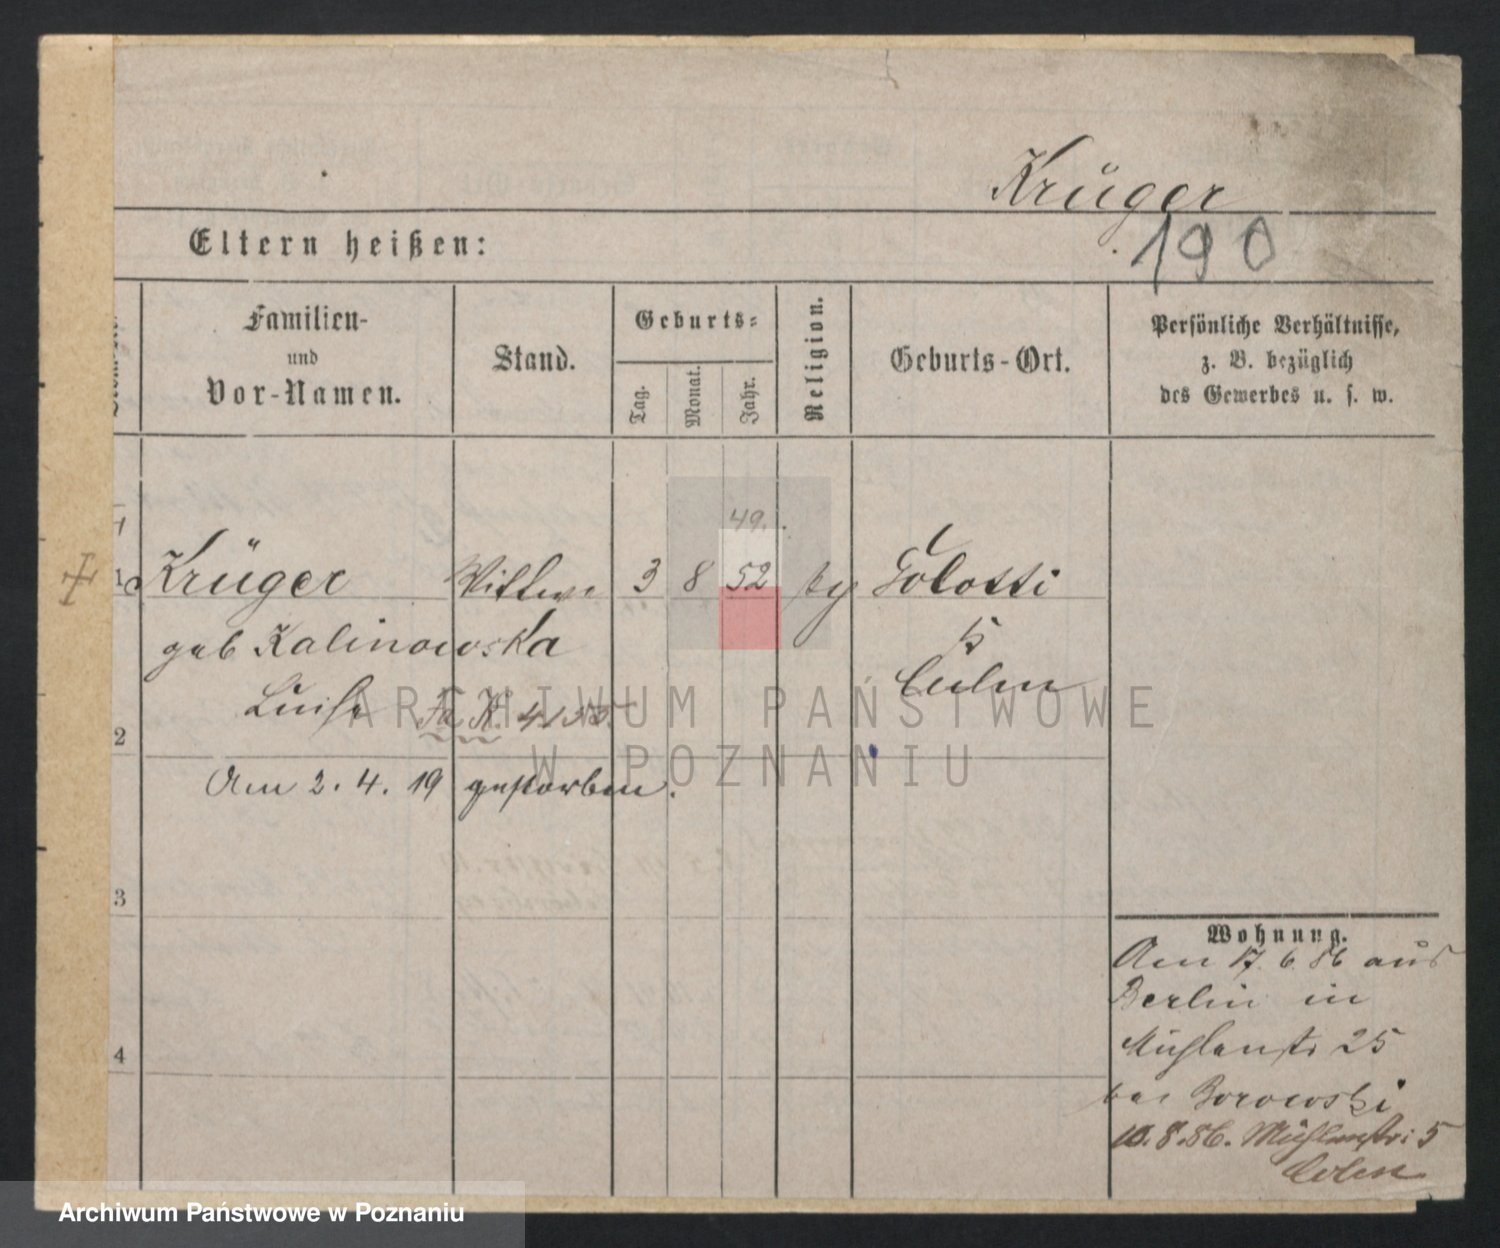 Krüger
190
Eltern heißen:
Familien-
und
Vor-Namen.
Stand.
Geburts-
Tag.
Monat.
Jahr.
Religion.
Geburts-Ort.
Persönliche Verhältnisse,
z. B. bezüglich
des Gewerbes u. s. w.
49.
1 Krüger Wittwe 3 8 52 Golotti
geb Kalinowska
Culm
Luise Fa. K.
2
Am 2. 4. 19 gestorben.
3
Wohnung.
Am 17. 6. 86 aus
Berlin in
4 Mühlenstr 25
bei Borowski
10. 8. 86. Mühlenstr: 5
ARCHIWUM PAŃSTWOWE
W POZNANIU
Archiwum Państwowe w Poznaniu